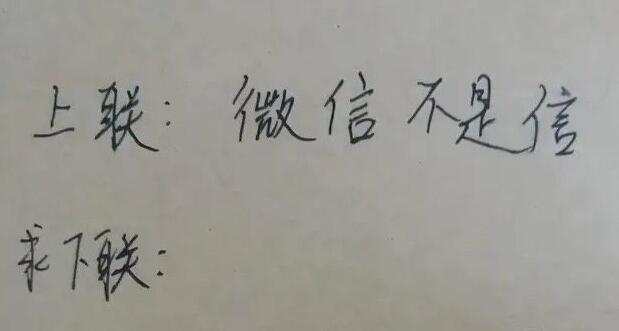 上联：微信不是信
求下联：